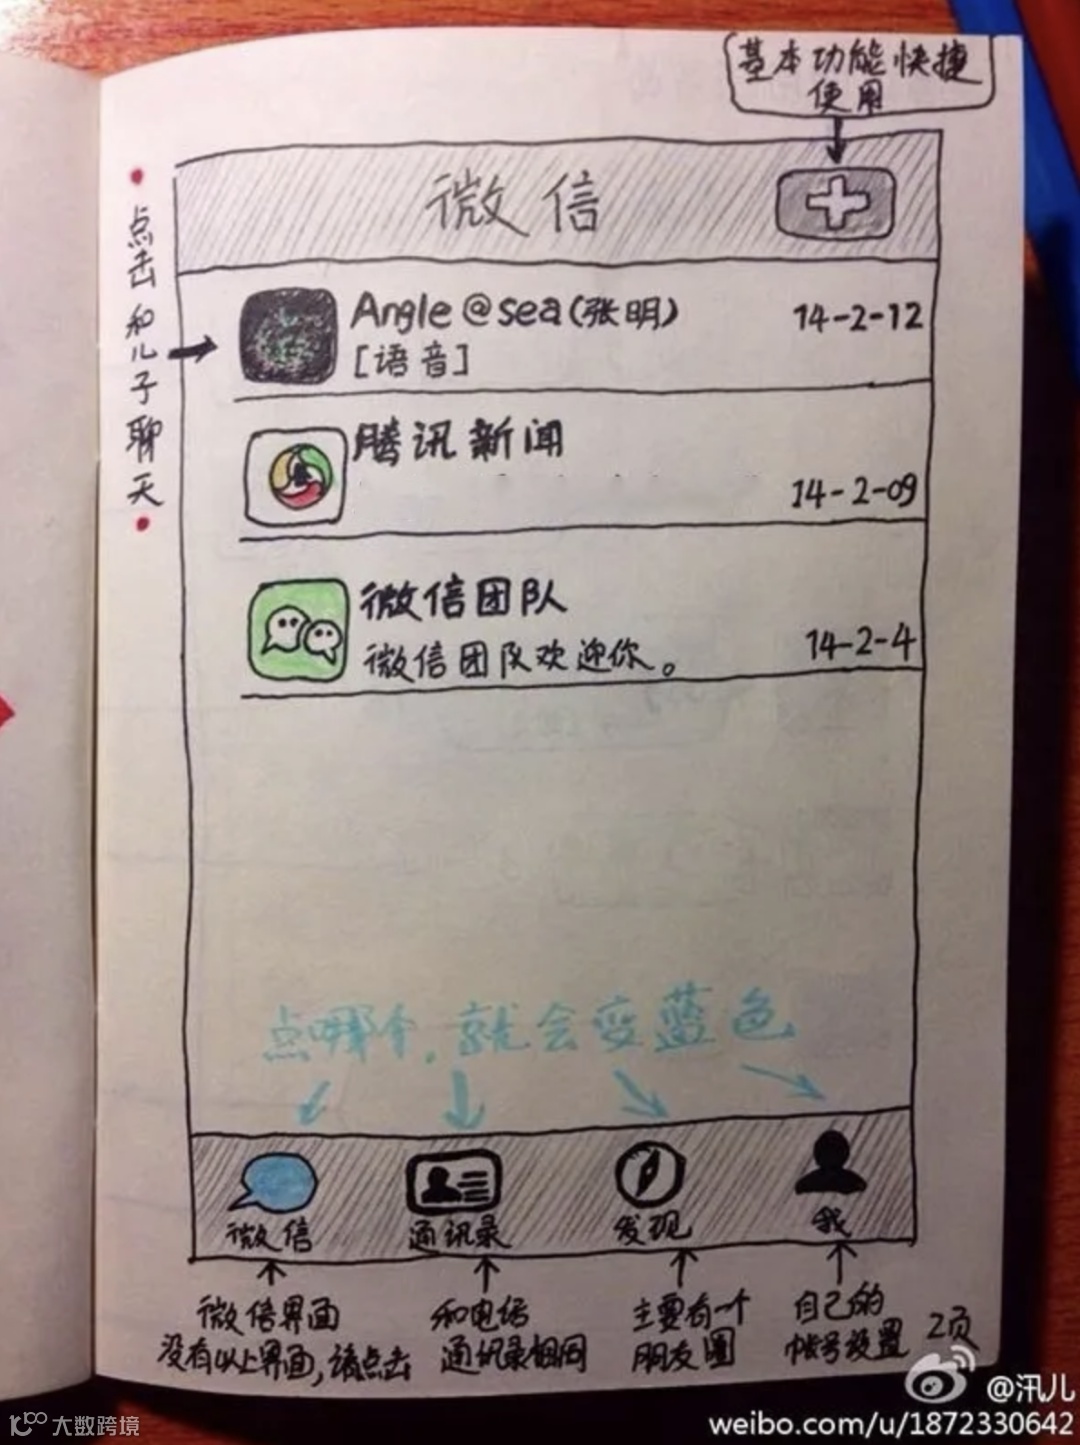 基本功能快捷
使用
微信
•点击和儿子聊天•
Angle@sea(张明)
14-2-12
[语音]
腾讯新闻
14-2-09
微信团队
微信团队欢迎你。
14-2-4
点哪个,就会变蓝色
微信
通讯录
发现
我
微信界面
没有以上界面,请点击
和电话
通讯录相同
主要有一个
朋友圈
自己的
帐号设置
2页
@汛儿
weibo.com/u/1872330642
大数跨境